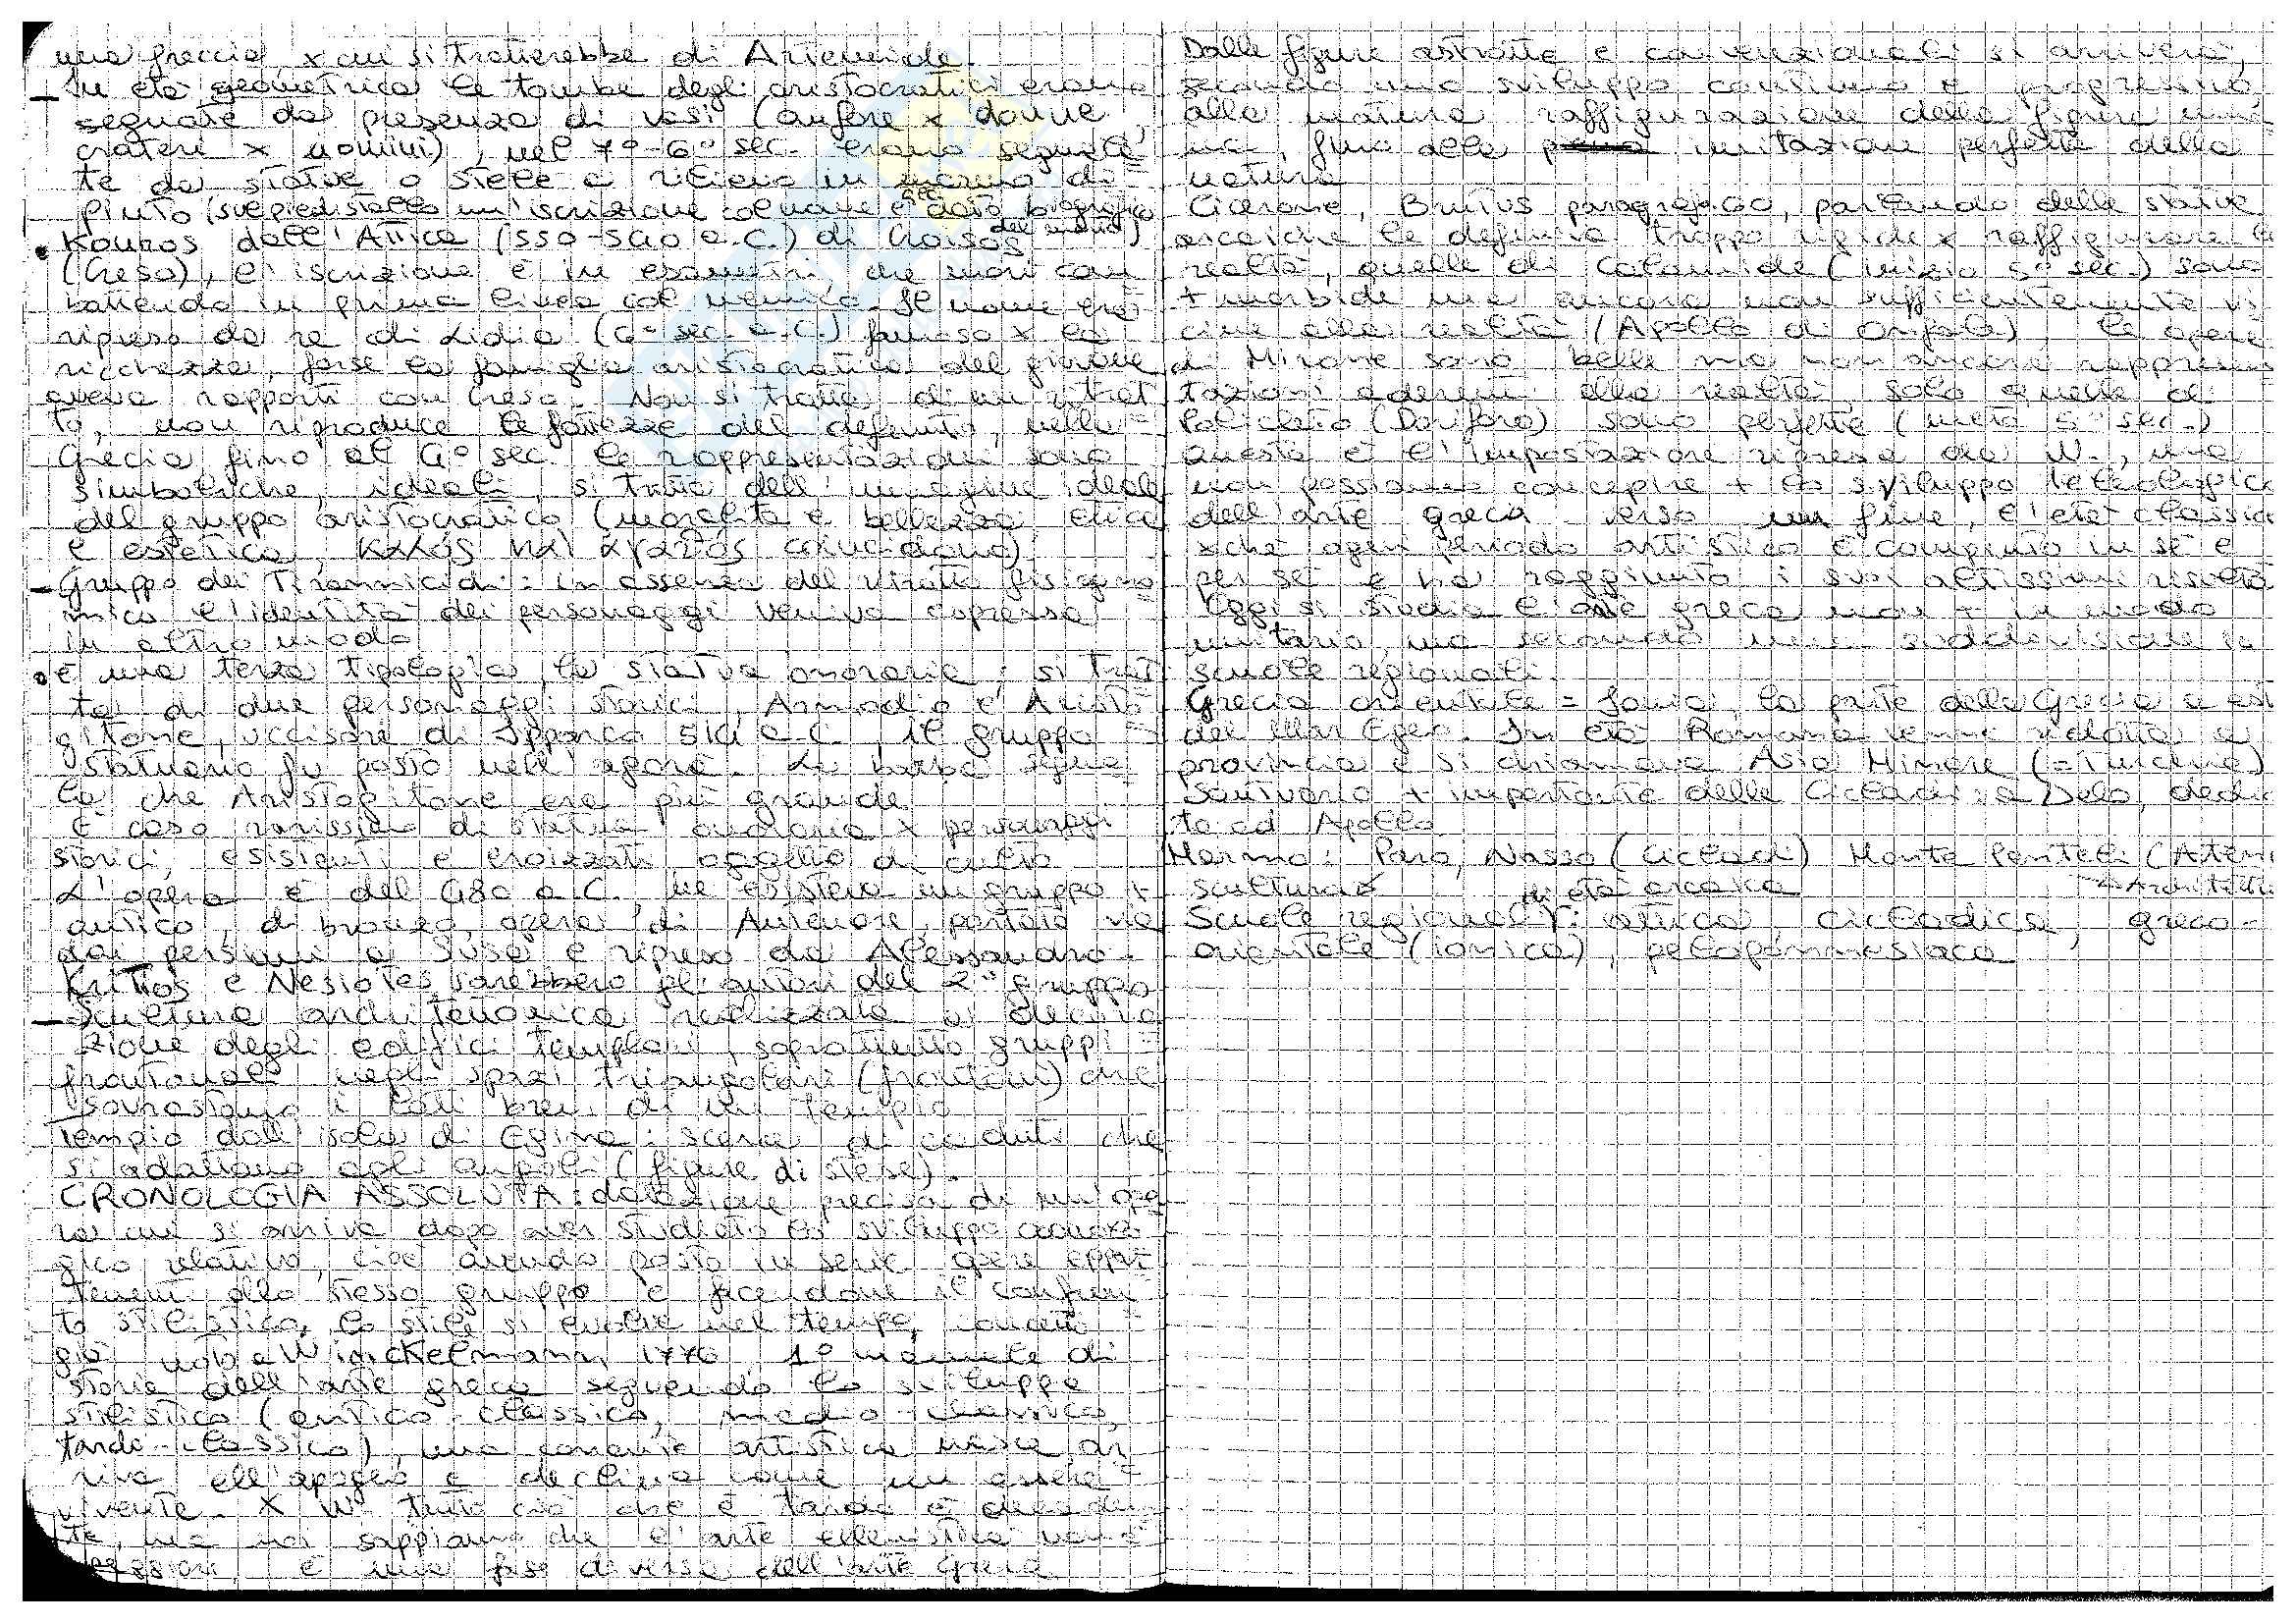 una freccia, x cui si tratterebbe di Artemide.
- In età geometrica le tombe degli aristocratici erano
segnate da presenza di vasi (anfore x donne,
crateri x uomini), nel 7°-6° sec. erano segnala
te da statue o stele a rilievo in marmo di
pinto (sul piedistallo un'iscrizione col nome e dato biografico
del morto)
• Kouros dall'Attica (550-540 a.C.) di Croisos
(Creso), l'iscrizione è in esametri che morì com
battendo in prima linea col nemico. Il nome era
ripreso da re di Lidia (6° sec. a.C.) famoso x la
ricchezza, forse la famiglia aristocratica del giovane
aveva rapporti con Creso. Non si tratta di un ritrat
to, non riproduce le fattezze del defunto, nella
Grecia fino al 4° sec. le rappresentazioni sono
simboliche, ideali, si tratta dell'immagine ideale
del gruppo aristocratico (moralità e bellezza etica
e estetica, καλός καί αγαθός coincidono)
- Gruppo dei Tirannicidi: in assenza del ritratto fisiogno
mico l'identità dei personaggi veniva espressa
in altro modo
• È una terza tipologia, la statua onoraria; si trat
ta di due personaggi storici, Armodio e Aristo
gitone, uccisore di Ipparco 514 a.C., il gruppo
statuario fu posto nell'agorà. La barba segna
la che Aristogitone era più grande
È caso rarissimo di statua onoraria x personaggi
storici, esistenti e eroizzati oggetto di culto
L'opera è del 480 a.C., ne esisteva un gruppo +
antico, di bronzo, opera di Antenore, portato via
dai persiani a Susa e ripreso da Alessandro.
Kritios e Nesiotes sarebbero gli autori del 2° gruppo
- Scultura architettonica realizzata a decora
zione degli edifici templari, soprattutto gruppi
frontonali negli spazi triangolari (frontoni) che
sovrastano i lati brevi di un tempio
Tempio dall'isola di Egina: scena di caduti che
si adattano agli angoli (figure distese).
CRONOLOGIA ASSOLUTA: datazione precisa di un'ope
ra cui si arriva dopo aver studiato lo sviluppo cronolo
gico relativo, cioè avendo posto in serie opere appar
tenenti allo stesso gruppo e facendone il confron
to stilistico, lo stile si evolve nel tempo, concetto
già noto a Winckelmann, 1770, 1° manuale di
storia dell'arte greca seguendo lo sviluppo
stilistico (antico-classico, medio-classico,
tardo-classico), una corrente artistica nasce ar
riva all'apogeo e declina come un essere
vivente. X W. tutto ciò che è tardo è decaden
te, ma noi sappiamo che l'arte ellenistica non è
è una fase diversa dell'arte greca
Dalle figure astratte e convenzionali si arriverà,
secondo uno sviluppo continuo e progressivo,
alla matura raffigurazione della figura uma
na, fino alla imitazione perfetta della
natura
Cicerone, Brutus paragrafo 60, partendo dalle statue
arcaiche le definiva troppo rigide x raffigurare la
realtà, quelle di Calamide (inizio 5° sec.) sono
+ morbide ma ancora non sufficientemente vi
cine alla realtà (Apollo di Onfalo), le opere
di Mirone sono belle ma non ancora rappresen
tazioni aderenti alla realtà, solo quelle di
Policleto (Doriforo) sono perfette (metà 5° sec.)
Questa è l'impostazione ripresa da W., ma
non possiamo concepire + lo sviluppo teleologico
dell'arte greca verso un fine, l'età classica
xchè ogni periodo artistico è compiuto in sé e
per sé e ha raggiunto i suoi altissimi risulta
Oggi si studia l'arte greca non + in modo
unitario, ma secondo una suddivisione in
scuole regionali.
Grecia orientale = Ionia, la parte della Grecia a est
del Mar Egeo. In età Romana venne ridotta a
provincia e si chiamava Asia Minore (= Turchia)
Santuario + importante delle Cicladi: a Delo, dedica
to ad Apollo
Marmo: Paro, Nasso (Cicladi) Monte Penteli (Atene
scultura → Architettu
di età arcaica
Scuole regionali: attica, cicladica, greco-
orientale (ionica), peloponnesiaca